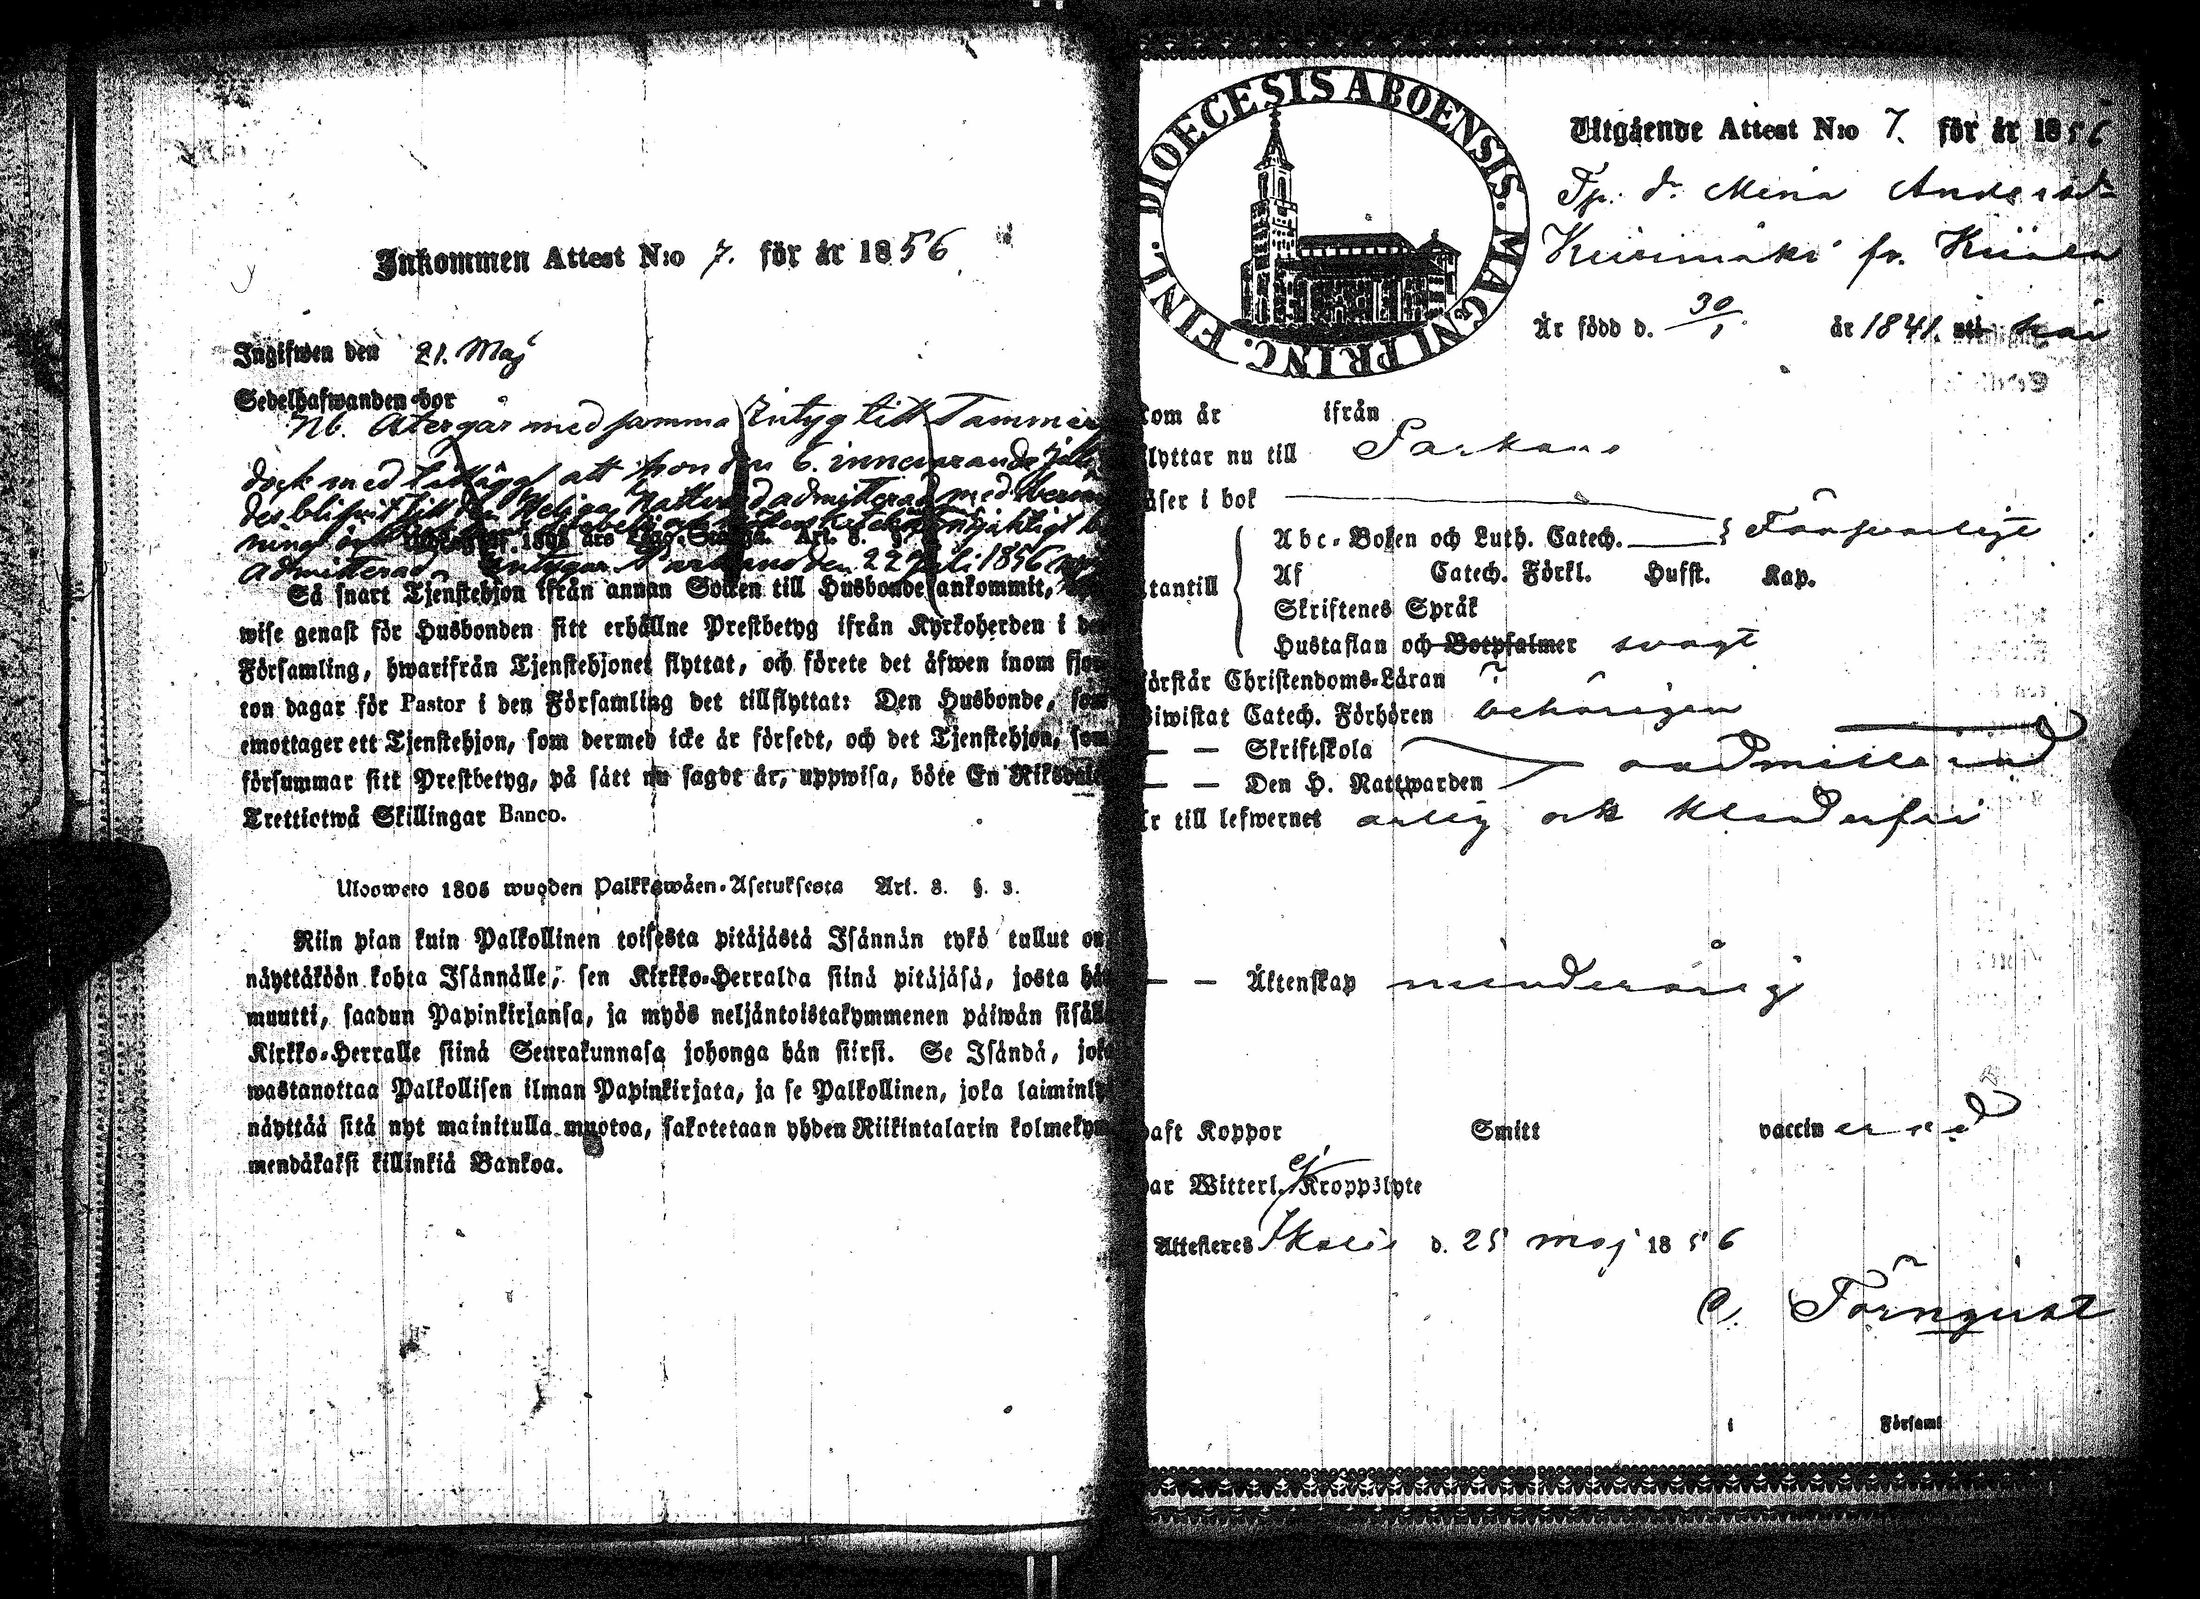 Inkommen Attest N:o 7. för år 1856
Ingifwen den 21. Maj
Sedelhafwanden bor
Nb. Återgår med samma Intyg till Tammer
dock med tillägg att hon den 6. innewarande Juli
des blifwit till den Heliga Nattward admitterad med
admitterad, intygar Parkano den 22 Juli 1856
Så snart Tjenstehjon ifrån annan Socken till Husbonde ankommit,
wise genast för Husbonden sitt erhållne Prestbetyg ifrån Kyrkoherden i den
Församling, hwarifrån Tjenstehjonet flyttat, och förete det äfwen inom fjor
ton dagar för Pastor i den Församling det tillflyttat: Den Husbonde, som
emottager ett Tjenstehjon, som dermed icke är försedt, och det Tjenstehjon, som
försummar sitt Prestbetyg, på sätt nu sagdt är, uppwisa, böte En Riksdaler
Trettiotwå Skillingar Banco.
Ulosweto 1805 wuoden Palkkawäen-Asetuksesta Art. 8. §. 3.
Niin pian kuin Palkollinen toisesta pitäjästä Isännän tykö tullut on,
näyttäköön kohta Isännälle, sen Kirkko-Herralda siinä pitäjäsä, josta hän
muutti, saadun Papinkirjansa, ja myös neljäntoistakymmenen päiwän sisällä
Kirkko-Herralle siinä Seurakunnasa johonga hän siirsi. Se Isändä, joka
wastanottaa Palkollisen ilman Papinkirjata, ja se Palkollinen, joka laiminly
näyttää sitä nyt mainitulla muotoa, sakotetaan yhden Riikintalarin kolmekym
mendäkaksi killinkiä Bankoa.
DIOECESIS ABOENSIS. MAGNI PRINC. FINL.
Utgående Attest N:o 7. för år 1856
Tp. dr Mina Andersdr
Kiirimäki fr. Kiiala
Är född d. 30/1. år 1841.
kom år ifrån
flyttar nu till Parkano
läser i bok
Abc-Boken och Luth. Catech. Förswarligt
Af Catech. Förkl. Husst. Kap.
utantill
Skriftenes Språk
Hustaflan och Botpsalmer swagt
förstår Christendoms-Läran
biwistat Catech. Förhören behörigen
— — Skriftskola
oadmitterad
— — Den H. Nattwarden
är till lefwernet ärlig och klanderfri
— — Äktenskap minderårig
haft Koppor Smitt vaccinerad
har Witterl. ej Kroppslyte
Attesteres Ikalis d. 25 maj 1856
C. Törnqvist
i Församl